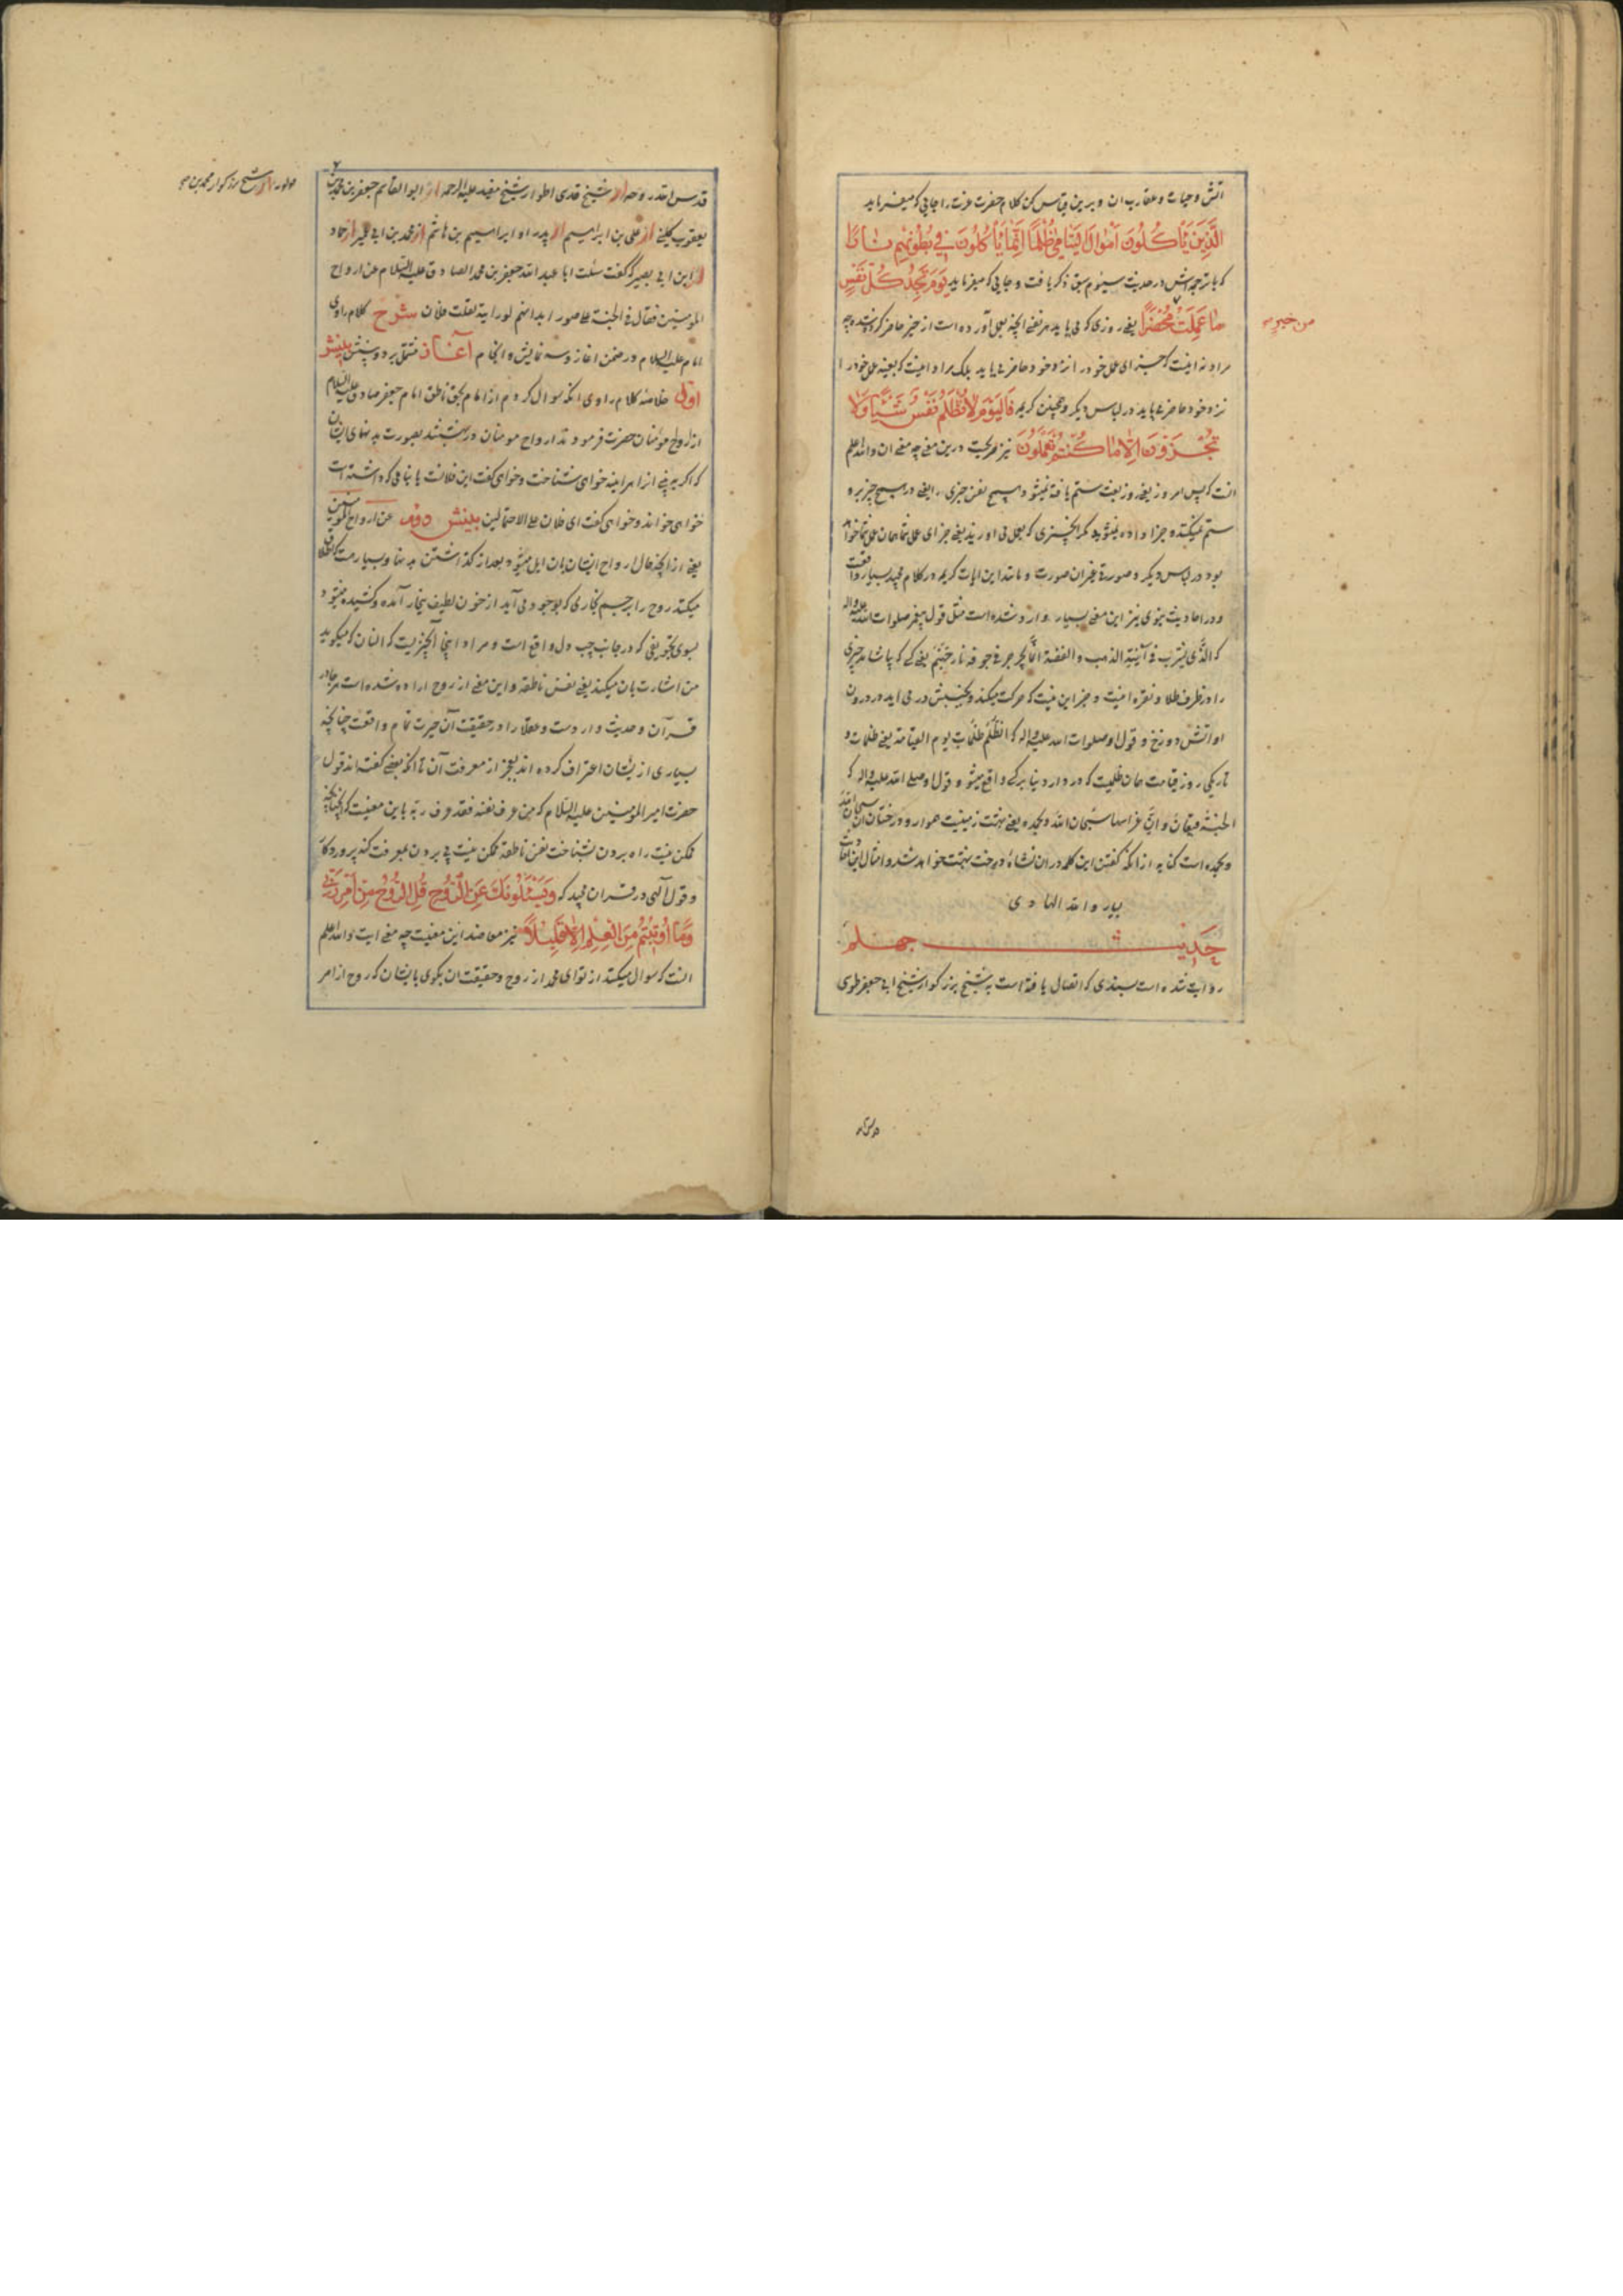 آتش و حیات و عقارب ان و برین قیاس کن کلام حضرت عزت را جایی که میفرماید
الَّذِینَ یَأْکُلُونَ أَمْوَالَ الْیَتَامَیٰ ظُلْمًا إِنَّمَا یَأْکُلُونَ فِي بُطُونِهِمْ نَارًا
که با ترجمه‌اش در حدیث سیوم سبق ذکر یافت و جایی که میفرماید یَوْمَ تَجِدُ کُلُّ نَفْسٍ
مَا عَمِلَتْ مُحْضَرًا یعنی روزی که می‌یابد هر نفسی انچه بعمل آورده است از خیر حاضر کرده شده چه
من خیر
مراد نه اینست که جزای عمل خود را نزد خود حاضر می‌یابد بلکه مراد اینست که بعینه عمل خود را
نزد خود حاضر می‌یابد در لباس دیکر و همچنین کریمه فَالْیَوْمَ لَا تُظْلَمُ نَفْسٌ شَیْئًا وَلَا
تُجْزَوْنَ إِلَّا مَا کُنْتُمْ تَعْمَلُونَ نیز صریحست درین معنی چه معنی ان والله اعلم
انست که پس امروز یعنی روز بعث ستم یافته نمیشود هیچ نفس چیزی را یعنی در هیچ چیز برو
ستم نمیکنند و جزا داده نمیشوید مکر انچیزی که بعمل می اورید یعنی جزای عمل شما همان عمل شما خواهد
بود در لباس دیکر و صورة غیر ان صورت و مانند این ایات کریمه در کلام مجید بسیار واقعست
و در احادیث نبوی نیز این معنی بسیار وارد شده است مثل قول پیغمبر صلوات الله علیه واله
که الذی یشرب فی آنیة الذهب والفضة انما یجرجر فی جوفه نار جهنم یعنی کسی که بیاشامد چیزی
را در ظرف طلا و نقره اینست و جز این نیست که حرکت میکند و بجنبش در می اید در درون
او آتش دوزخ و قول او صلوات الله علیه واله که الظلم ظلمات یوم القیامة یعنی ظلمات و
تاریکی روز قیامت همان ظلمیست که در دار دنیا بر کسی واقع میشود و قول او صلی الله علیه واله که
الجنة قیعان و ان غراسها سبحان الله وبحمده یعنی بهشت زمینیست هموار و درختان ان سبحان الله
وبحمده است کنایه از انکه کفتن این کلمه در ان نشاه درخت بهشت خواهد شد و امثال این احادیث
بسیار والله الهادی
حدیث چهلم
روایت شده است بسندی که اتصال یافته است به شیخ بزرکوار شیخ ابی جعفر طوسی
قدس الله روحه از شیخ قدسی اطوار شیخ مفید علیه الرحمه از ابو القاسم جعفر بن محمد
از شیخ بزرکوار محمد بن
یعقوب کلینی از علی بن ابراهیم از پدر او ابراهیم بن هاشم از محمد بن ابی عمیر از حماد
از ابن ابی بصیر که گفت سئلت ابا عبد الله جعفر بن محمد الصادق علیه السلام عن ارواح
المومنین فقال فی الجنة علی صور ابدانهم لو رایته لقلت فلان شرح کلام راوی
امام علیه السلام در ضمن اغاز و سه نمایش و انجام آغاز مشتمل بر دو بینش بینش
اول خلاصه کلام راوی انکه سوال کردم از امام بحق ناطق امام جعفر صادق علیه السلام
از ارواح مومنان حضرت فرمودند ارواح مومنان در بهشتند بصورت بدنهای ایشان
که اکر ببینی انرا هراینه خواهی شناخت و خواهی کفت این فلانست یا بنامی که داشته است
خواهی خواند و خواهی کفت ای فلان علی الاحتمالین بینش دوم عن ارواح المومنین
یعنی از انچه حال ارواح ایشان بان ایل میشود بعد از کذاشتن بدنها و بسیارست که اطلاق
میکنند روح را بر جسم بخاری که بوجود می آید از خون لطیف بخار آمده و کشیده میشود
بسوی تجویفی که در جانب چپ دل واقع است و مراد اینجا آنچیزیست که انسان که میکوید
من اشارت بان میکند یعنی نفس ناطقه و این معنی از روح اراده شده است هر جا در
قرآن و حدیث واردست و عقلا را در حقیقت آن حیرت تمام واقعست چنانچه
بسیاری از ایشان اعتراف کرده اند بعجز از معرفت آن تا انکه بعضی کفته اند قول
حضرت امیر المومنین علیه السلام که من عرف نفسه فقد عرف ربه باین معنیست که چنانچه
ممکن نیست راه بردن بشناخت نفس ناطقه ممکن نیست پی بردن بمعرفت کنه پروردکار
و قول آلهی در قران مجید که وَیَسْئَلُونَكَ عَنِ الرُّوحِ قُلِ الرُّوحُ مِنْ أَمْرِ رَبِّي
وَمَا أُوتِیتُمْ مِنَ الْعِلْمِ إِلَّا قَلِیلًا نیز معاضد این معنیست چه معنی ایت والله اعلم
انست که سوال میکنند از تو ای محمد از روح و حقیقت ان بکوی بایشان که روح از امر